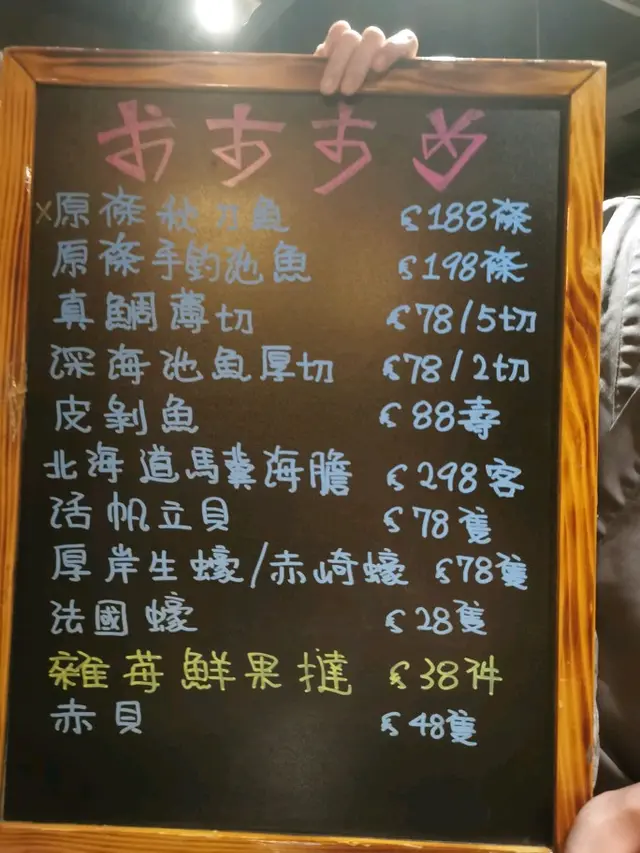 おすすめ
x原條秋刀魚 $188條
原條手釣池魚 $198條
真鯛薄切 $78/5切
深海池魚厚切 $78/2切
皮剝魚 $88壽
北海道馬糞海膽 $298客
活帆立貝 $78隻
厚岸生蠔/赤崎蠔 $78隻
法國蠔 $28隻
雜苺鮮果撻 $38件
赤貝 $48隻